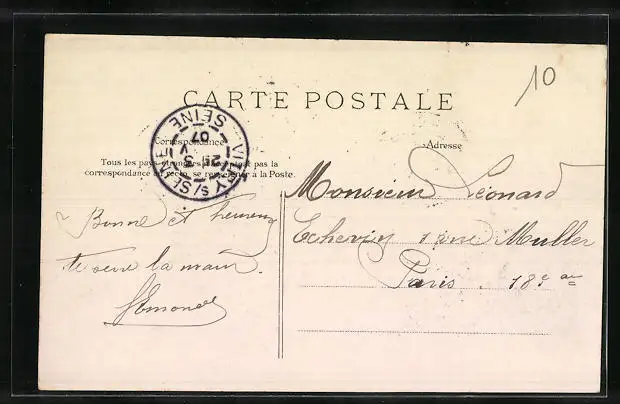 10
CARTE POSTALE
Correspondance
Adresse
Tous les pays étrangers n'acceptent pas la
correspondance au recto, se renseigner à la Poste.
VITRY S/ SEINE
3
07
SEINE
Monsieur Léonard
Echevin 1 rue Muller
Paris. 18e
Bonne et heureuse
la main.